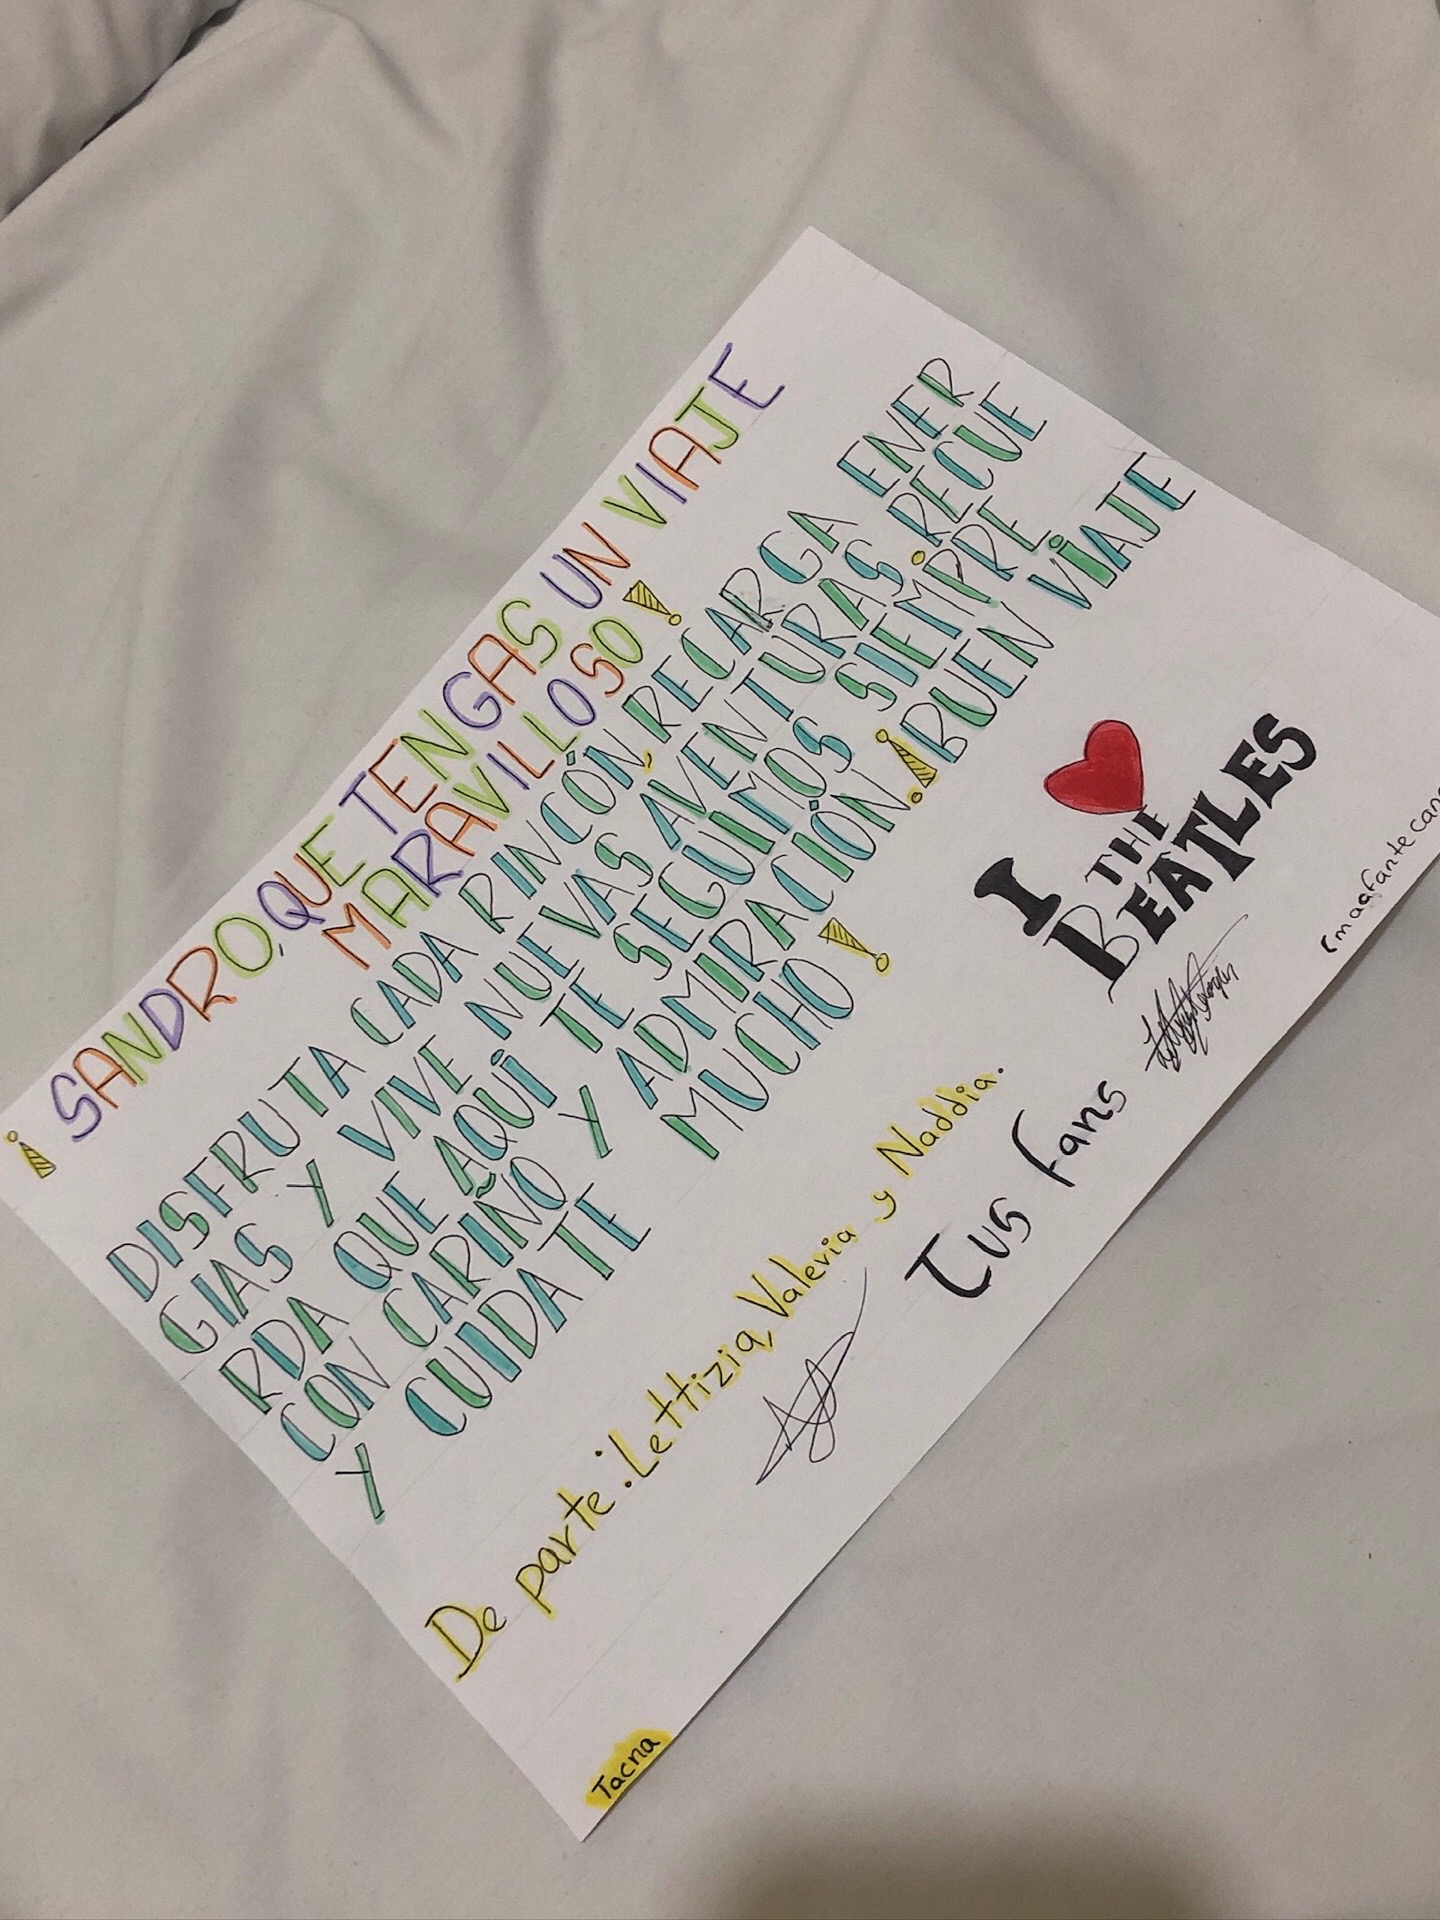 ¡SANDRO, QUE TENGAS UN VIAJE
MARAVILLOSO!
DISFRUTA CADA RINCÓN, RECARGA ENER
GIAS Y VIVE NUEVAS AVENTURAS RECUE
RDA QUE AQUÍ TE SEGUIMOS SIEMPRE
CON CARIÑO Y ADMIRACIÓN ¡BUEN VIAJE
Y CUIDATE MUCHO!
I ❤
THE
BEATLES
De parte: Lettizia, Valeria y Naddia.
Tus fans
Tacna